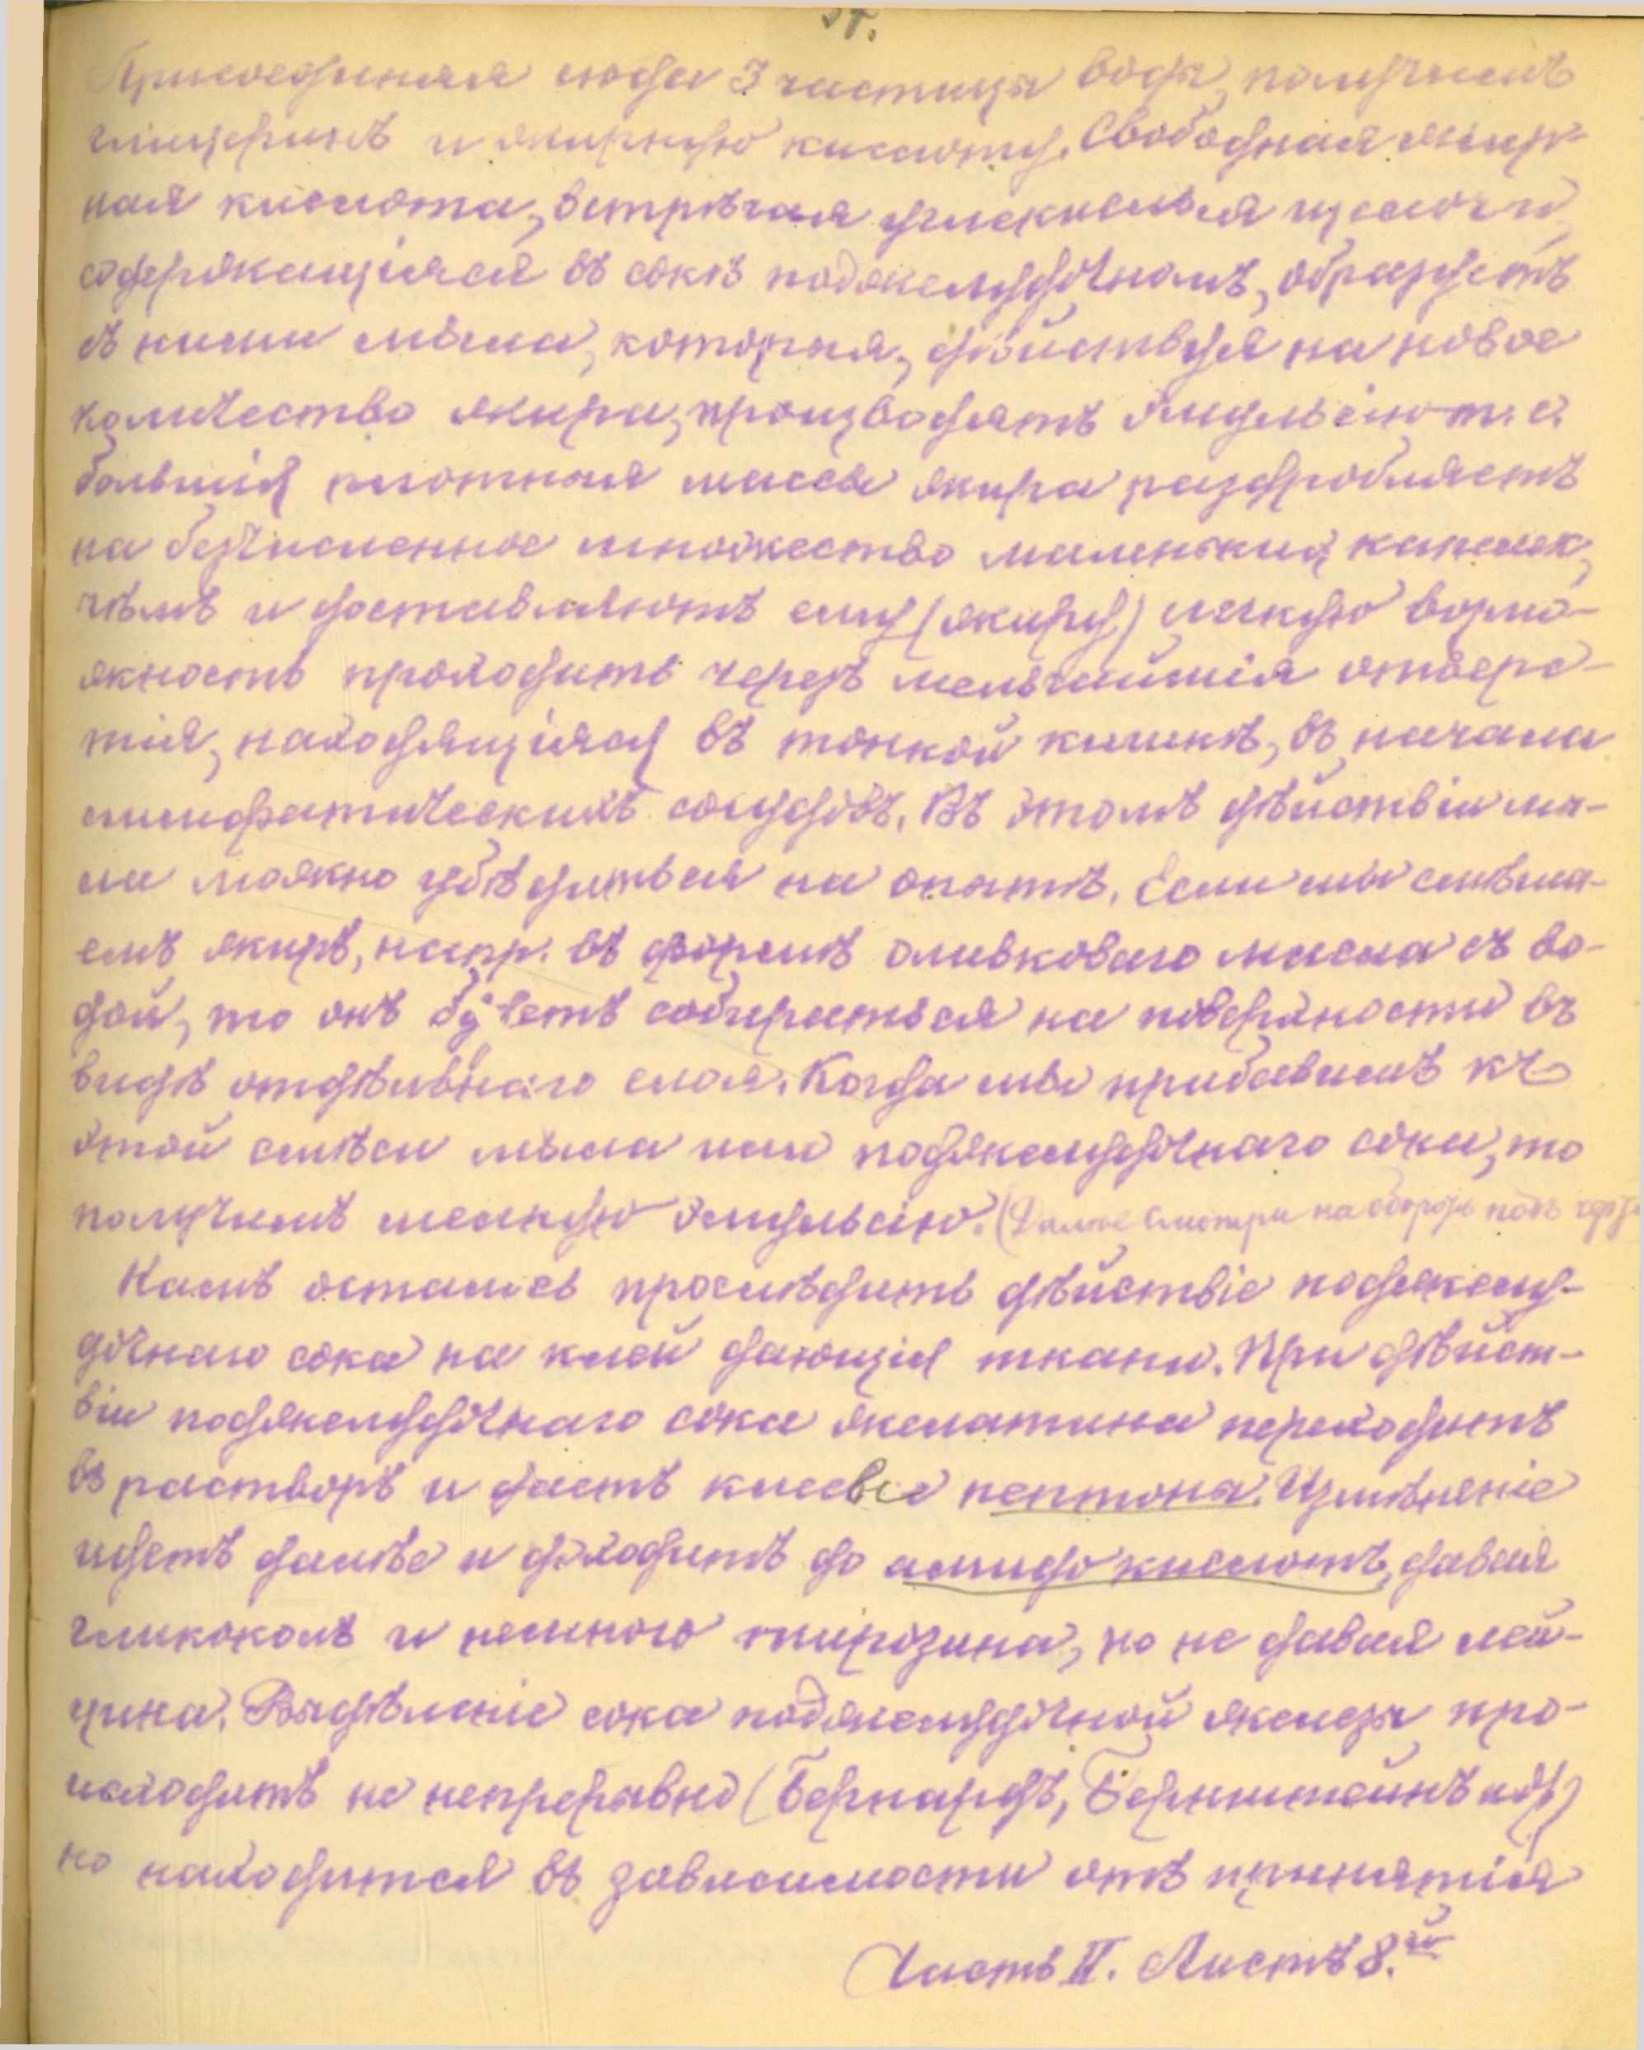 Присоединяя сюда 3 частицы воды, получимъ
глицеринъ и жирную кислоту. Свободная жир-
ная кислота, встрѣчая углекислыя щелочи,
содержащіяся въ сокѣ поджелудочномъ, образуетъ
съ ними мыла, которыя, дѣйствуя на новое
количество жира, производятъ эмульсію т. е.
большія плотныя массы жира раздробляетъ
на безчисленное множество маленькихъ капелек,
чѣмъ и доставляютъ ему (жиру) легкую возмо-
жность проходить через мельчайшія отверс-
тія, находящіяся въ тонкой кишкѣ, въ начала
лимфатическихъ сосудовъ. Въ этомъ дѣйствіи мы-
ла можно убѣдиться на опытѣ. Если мы смѣша-
емъ жиръ, напр. въ формѣ оливковаго масла съ во-
дой, то онъ будетъ собираться на поверхности въ
видѣ отдѣльнаго слоя. Когда мы прибавимъ къ
этой смѣси мыла или поджелудочнаго сока, то
получимъ мелкую эмульсію. (Далее смотри на обороте подъ
Намъ осталось прослѣдить дѣйствіе поджелу-
дочнаго сока на клей дающія ткани. При дѣйст-
віи поджелудочнаго сока желатина переходитъ
въ растворъ и даетъ клеевые пептоны. Измѣненіе
идетъ далѣе и доходитъ до амидо кислотъ, давая
гликоколъ и немного тирозина, но не давая лей-
цина. Выдѣленіе сока поджелудочной железы про-
исходитъ не непрерывно (Бернардъ, Бернштейнъ и др)
но находится въ зависимости отъ принятія
Часть II. Листъ 8.й